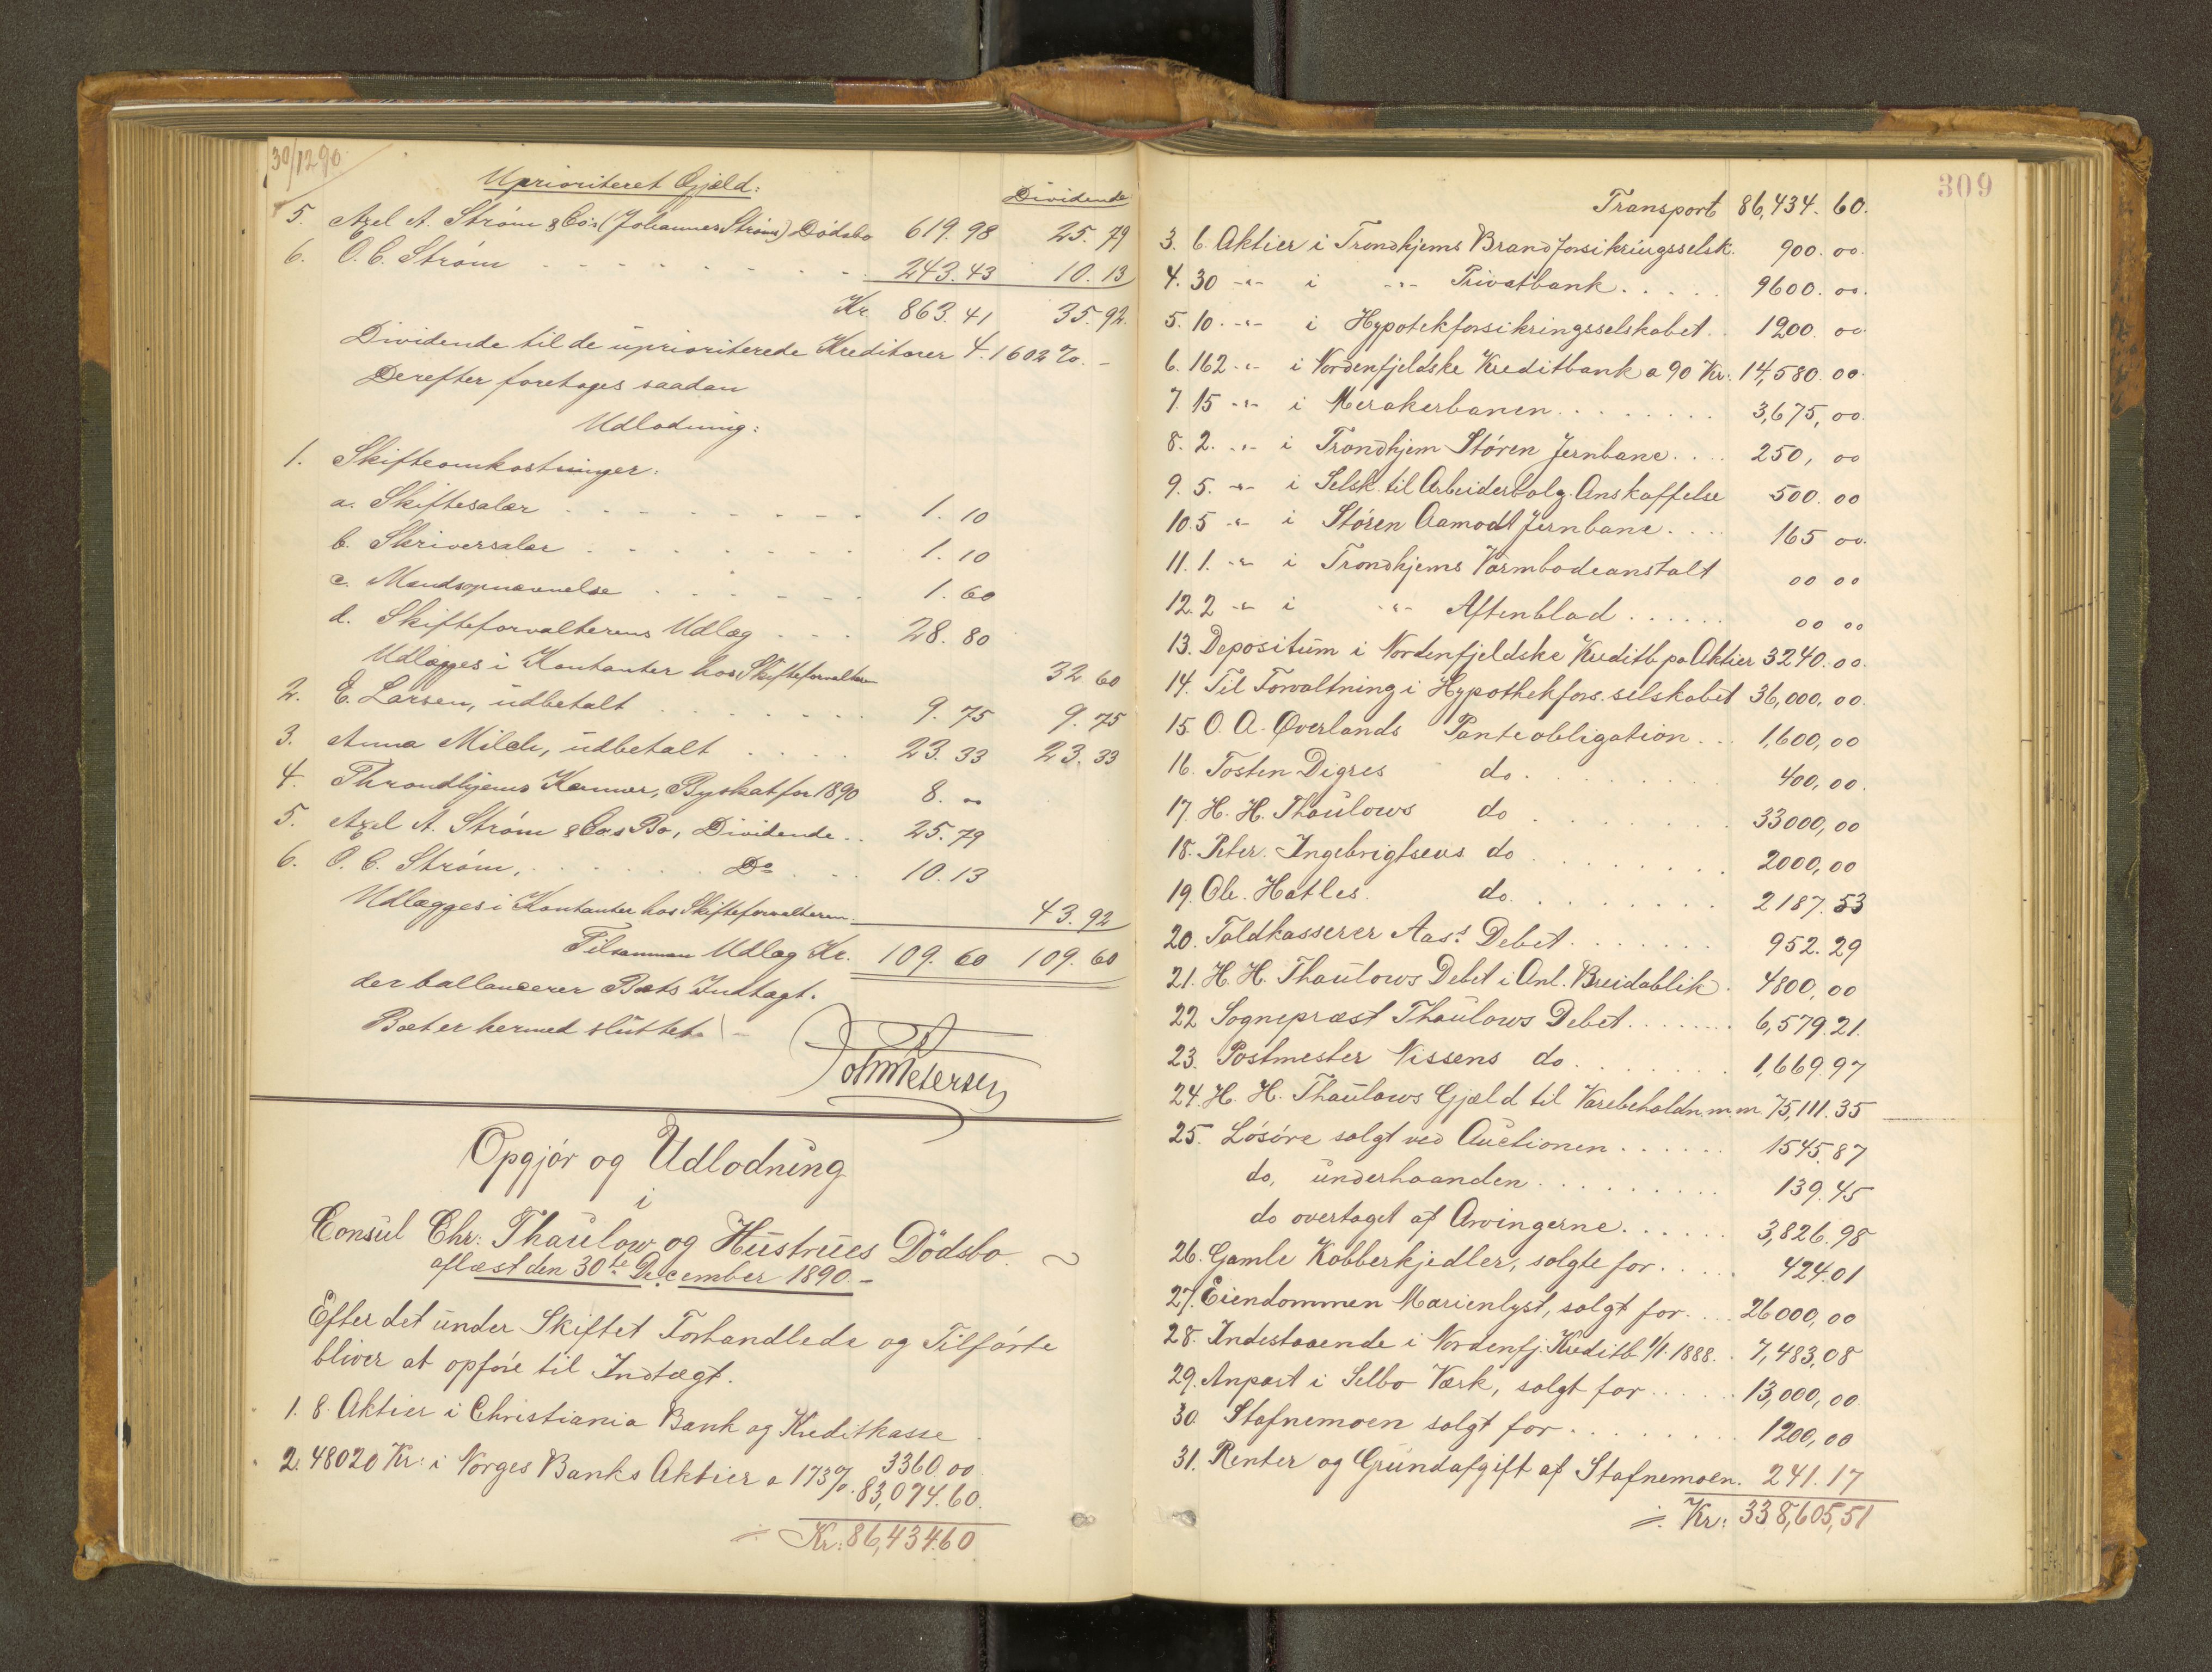 30/12 90
Uprioriteret Gjæld:
Dividende
5. Axel A. Strøm & Co's (Johannes Strøms) Dødsbo 619.98 25.79
6. O. C. Strøm 243.43 10.13
Kr. 863.41 35.92.
Dividende til de uprioriterede Kreditorer 4.1602 %. -
Derefter foretages saadan
Udlodning:
1. Skifteomkostninger:
a. Skiftesalær 1.10
b. Skriversalær 1.10
c. Mandsopnævnelse 1.60
d. Skifteforvalterens Udlæg 28.80
Udlægges i Kontanter hos Skifteforvalteren 32.60
2. E. Larsen, udbetalt 9.75 9.75
3. Anna Milch, udbetalt 23.33 23.33
4. Throndhjems Kemner, Byskat for 1890 8. "
5. Axel A. Strøm & Co.s Bo, Dividende 25.79
6. O. C. Strøm, Do 10.13
Udlægges i Kontanter hos Skifteforvalteren 43.92
Tilsammen Udlæg Kr. 109.60 109.60
der ballancerer Boets Indtægt.
Boet er hermed sluttet. -
Petersen
Opgjør og Udlodning
i
Consul Chr: Thaulow og Hustrues Dödsbo.
aflæst den 30te December 1890. -
Efter det under Skiftet Forhandlede og Tilførte
bliver at opføre til Indtægt.
1. 8 Aktier i Christiania Bank og Kreditkasse 3360 00
2. 48020 Kr: i Norges Banks Aktier a 173 %. 83,074.60.
÷ Kr: 86,434.60
309
Transport 86,434.60.
3. 6 Aktier i Trondhjems Brandforsikringsselsk. 900.00.
4. 30 -"- i -"- Privatbank 9600.00.
5. 10 -"- i Hypotekforsikringsselskabet 1200 00
6. 162 -"- i Nordenfjeldske Kreditbank a 90 Kr: 14,580.00.
7. 15 -"- i Merakerbanen 3,675,00.
8. 2. -"- i Trondhjem Støren Jernbane 250,00
9. 5. -"- i Selsk. til Arbeiderbolg. Anskaffelse 500.00
10. 5 -"- i Støren Aamodt Jernbane 165 00.
11. 1. -"- i Trondhjems Varmbadeanstalt 00 00
12. 2 -"- i -"- Aftenblad 00 00
13. Depositum i Nordenfjeldske Kreditb. pa Aktier 3240.00.
14. Til Forvaltning i Hypothekfors. selskabet 36,000,00.
15. O. A. Øverlands Panteobligation 1,600,00
16. Tosten Digres do. 400,00.
17. H. H. Thaulows do 33000,00
18. Peter Ingebrigtsens do 2000,00
19. Ole Hatles. do. 2187.53
20. Toldkasserer Aas's Debet 952.29
21. H. H. Thaulows Debet i Anl. Breidablik. 4800,00
22 Sognepræst Thaulows Debet 6,579.21.
23. Postmester Nissens do 1,669.97
24. H. H. Thaulows Gjæld til Varebeholdn. m.m 75,111.35
25. Løsøre solgt ved Auctionen 1545.87
do, underhaanden 139.45
do overtaget af Arvingerne 3,826.98
26. Gamle Kobberkjedler, solgte for 424.01
27. Eiendommen Marienlyst, solgt for 26000,00
28. Indestaaende i Nordenfj. Kreditb. 1/1 1888. 7,483,08
29. Anpart i Selbo Værk, solgt for 13,000,00
30. Stafnemoen solgt for 1200,00
31. Renter og Grundafgift af Stafnemoen. 241.17
÷ Kr: 338,605,51